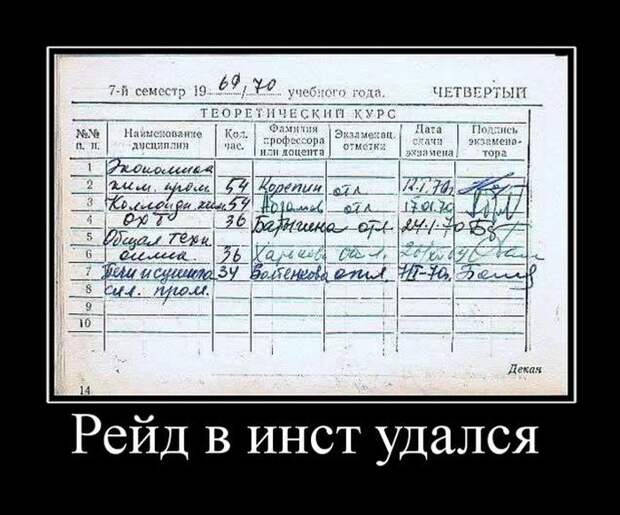 7-й семестр 19 69/70 учебного года. ЧЕТВЕРТЫЙ
ТЕОРЕТИЧЕСКИЙ КУРС
№№ п. п. Наименование дисциплин Кол. час. Фамилия профессора или доцента Экзаменац. отметки Дата сдачи экзамена Подпись экзаменатора
1 Экономика
2 хим. пром. 54 Корепин отл 12.I.70г.
3 Коллоидн. хим. 54 Абрамов отл 17.01.70
4 ОХТ 36 Барыгина отл. 24.1.70
5 Общая техн.
6 36
7 Печи и сушила 34 отл.
8 сил. пром.
9
10
Декан
14
Рейд в инст удался